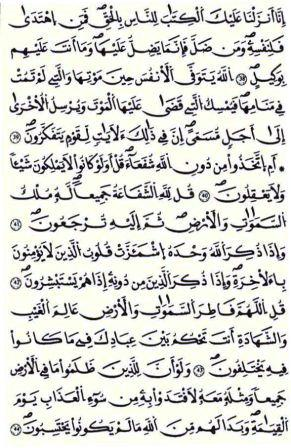 إِنَّا أَنزَلْنَا عَلَيْكَ اَلْكِتَٰبَ لِلنَّاسِ بِالْحَقِّ فَمَنِ اِهْتَدَىٰ
فَلِنَفْسِهِ وَمَن ضَلَّ فَإِنَّمَا يَضِلُّ عَلَيْهَا وَمَا أَنتَ عَلَيْهِم
بِوَكِيلٍ ٣٨ اَللَّهُ يَتَوَفَّى اَلْأَنفُسَ حِينَ مَوْتِهَا وَالتِي لَمْ تَمُتْ
فِي مَنَامِهَا فَيُمْسِكُ اُلتِي قَضَىٰ عَلَيْهَا اَلْمَوْتَ وَيُرْسِلُ اُلْأُخْرَىٰ
إِلَىٰ أَجَلٍ مُّسَمًّى إِنَّ فِي ذَٰلِكَ لَأٓيَٰتٍ لِّقَوْمٍ يَتَفَكَّرُونَ ٣٩
* أَمِ اِتَّخَذُوا مِن دُونِ اِللَّهِ شُفَعَآءَ قُلْ أَوَلَوْ كَانُوا لَا يَمْلِكُونَ شَيْـًٔا
وَلَا يَعْقِلُونَ ٤٠ قُل لِّلهِ اِلشَّفَٰعَةُ جَمِيعًا لَّهُ مُلْكُ
اُلسَّمَٰوَٰتِ وَالْأَرْضِ ثُمَّ إِلَيْهِ تُرْجَعُونَ ٤١
وَإِذَا ذُكِرَ اَللَّهُ وَحْدَهُ اُشْمَأَزَّتْ قُلُوبُ اُلذِينَ لَا يُؤْمِنُونَ
بِالْأٓخِرَةِ وَإِذَا ذُكِرَ اَلذِينَ مِن دُونِهِ إِذَا هُمْ يَسْتَبْشِرُونَ ٤٢
قُلِ اِللَّهُمَّ فَاطِرَ اَلسَّمَٰوَٰتِ وَالْأَرْضِ عَٰلِمَ اَلْغَيْبِ
وَالشَّهَٰدَةِ أَنتَ تَحْكُمُ بَيْنَ عِبَادِكَ فِي مَا كَانُوا
فِيهِ يَخْتَلِفُونَ ٤٣ وَلَوْ أَنَّ لِلذِينَ ظَلَمُوا مَا فِي اِلْأَرْضِ
جَمِيعًا وَمِثْلَهُ مَعَهُ لَافْتَدَوْا بِهِ مِن سُوٓءِ اِلْعَذَابِ يَوْمَ
اَلْقِيَٰمَةِ وَبَدَا لَهُم مِّنَ اَللَّهِ مَا لَمْ يَكُونُوا يَحْتَسِبُونَ ٤٤